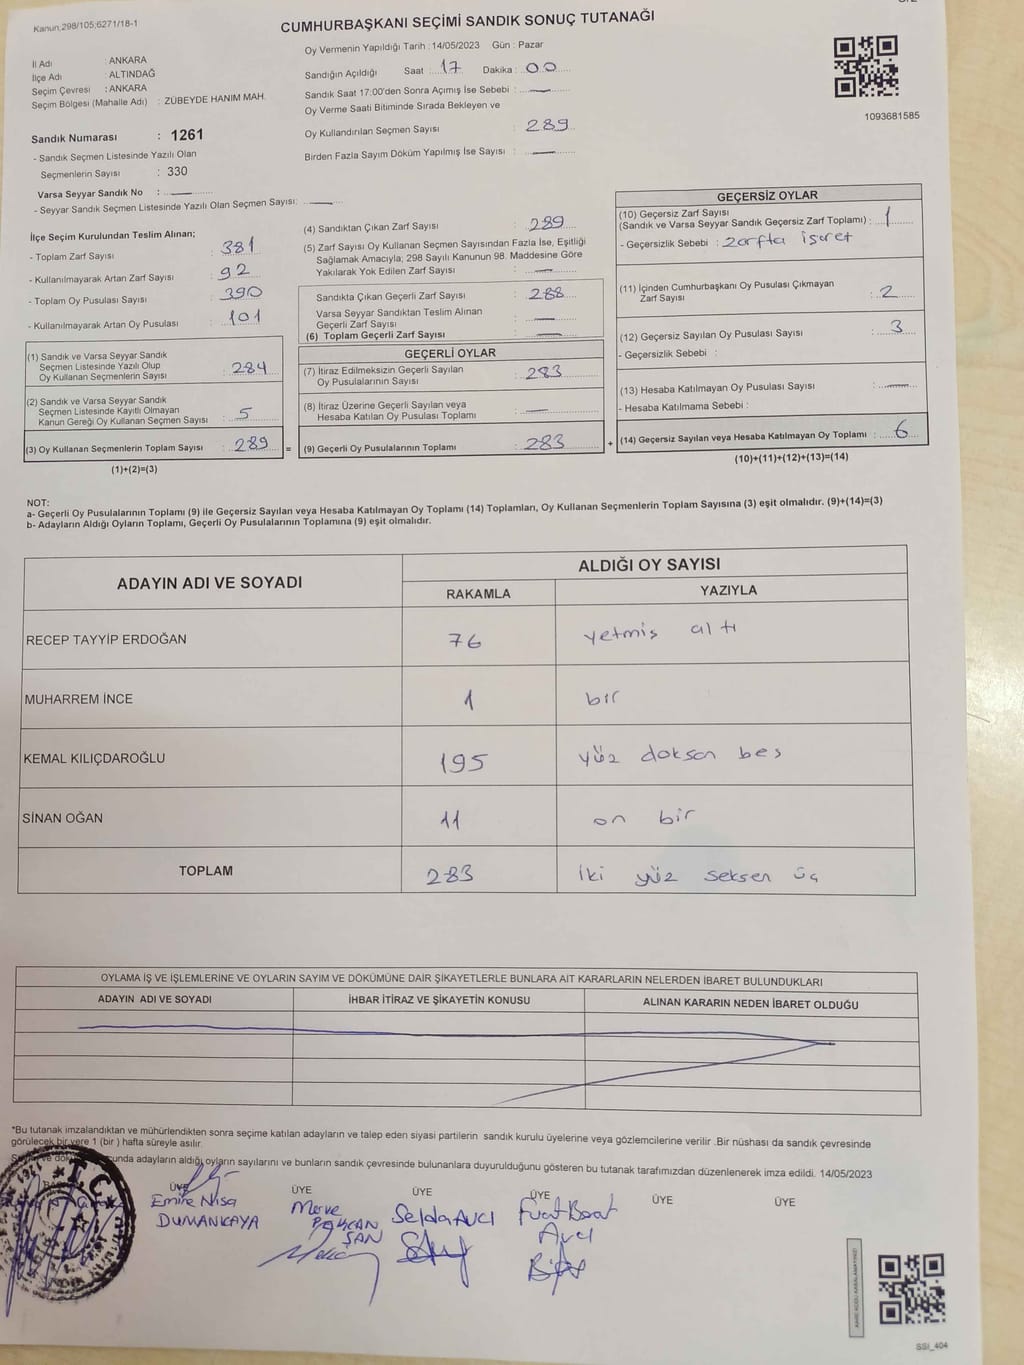 Kanun;298/105;6271/18-1
CUMHURBAŞKANI SEÇİMİ SANDIK SONUÇ TUTANAĞI
Oy Vermenin Yapıldığı Tarih : 14/05/2023 Gün : Pazar
İl Adı : ANKARA
İlçe Adı : ALTINDAĞ
Seçim Çevresi : ANKARA
Seçim Bölgesi (Mahalle Adı) : ZÜBEYDE HANIM MAH.
Sandığın Açıldığı Saat : 17 Dakika : 00
Sandık Saat 17:00'den Sonra Açımış İse Sebebi :
Oy Verme Saati Bitiminde Sırada Bekleyen ve
Oy Kullandırılan Seçmen Sayısı : 289
Birden Fazla Sayım Döküm Yapılmış İse Sayısı :
1093681585
Sandık Numarası : 1261
- Sandık Seçmen Listesinde Yazılı Olan
Seçmenlerin Sayısı : 330
Varsa Seyyar Sandık No :
- Seyyar Sandık Seçmen Listesinde Yazılı Olan Seçmen Sayısı:
İlçe Seçim Kurulundan Teslim Alınan;
- Toplam Zarf Sayısı : 381
- Kullanılmayarak Artan Zarf Sayısı : 92
- Toplam Oy Pusulası Sayısı : 390
- Kullanılmayarak Artan Oy Pusulası : 101
(1) Sandık ve Varsa Seyyar Sandık
Seçmen Listesinde Yazılı Olup
Oy Kullanan Seçmenlerin Sayısı : 284
(2) Sandık ve Varsa Seyyar Sandık
Seçmen Listesinde Kayıtlı Olmayan
Kanun Gereği Oy Kullanan Seçmen Sayısı : 5
(3) Oy Kullanan Seçmenlerin Toplam Sayısı : 289 =
(1)+(2)=(3)
(4) Sandıktan Çıkan Zarf Sayısı : 289
(5) Zarf Sayısı Oy Kullanan Seçmen Sayısından Fazla İse, Eşitliği
Sağlamak Amacıyla; 298 Sayılı Kanunun 98. Maddesine Göre
Yakılarak Yok Edilen Zarf Sayısı :
Sandıkta Çıkan Geçerli Zarf Sayısı : 288
Varsa Seyyar Sandıktan Teslim Alınan
Geçerli Zarf Sayısı :
(6) Toplam Geçerli Zarf Sayısı :
GEÇERLİ OYLAR
(7) İtiraz Edilmeksizin Geçerli Sayılan
Oy Pusulalarının Sayısı : 283
(8) İtiraz Üzerine Geçerli Sayılan veya
Hesaba Katılan Oy Pusulası Toplamı :
(9) Geçerli Oy Pusulalarının Toplamı : 283 +
GEÇERSİZ OYLAR
(10) Geçersiz Zarf Sayısı
(Sandık ve Varsa Seyyar Sandık Geçersiz Zarf Toplamı) : 1
- Geçersizlik Sebebi : zarfta işaret
(11) İçinden Cumhurbaşkanı Oy Pusulası Çıkmayan
Zarf Sayısı : 2
(12) Geçersiz Sayılan Oy Pusulası Sayısı : 3
- Geçersizlik Sebebi :
(13) Hesaba Katılmayan Oy Pusulası Sayısı :
- Hesaba Katılmama Sebebi :
(14) Geçersiz Sayılan veya Hesaba Katılmayan Oy Toplamı : 6
(10)+(11)+(12)+(13)=(14)
NOT:
a- Geçerli Oy Pusulalarının Toplamı (9) ile Geçersiz Sayılan veya Hesaba Katılmayan Oy Toplamı (14) Toplamları, Oy Kullanan Seçmenlerin Toplam Sayısına (3) eşit olmalıdır. (9)+(14)=(3)
b- Adayların Aldığı Oyların Toplamı, Geçerli Oy Pusulalarının Toplamına (9) eşit olmalıdır.
ADAYIN ADI VE SOYADI ALDIĞI OY SAYISI
RAKAMLA YAZIYLA
RECEP TAYYİP ERDOĞAN 76 yetmiş altı
MUHARREM İNCE 1 bir
KEMAL KILIÇDAROĞLU 195 yüz doksan beş
SİNAN OĞAN 11 on bir
TOPLAM 283 iki yüz seksen üç
OYLAMA İŞ VE İŞLEMLERİNE VE OYLARIN SAYIM VE DÖKÜMÜNE DAİR ŞİKAYETLERLE BUNLARA AİT KARARLARIN NELERDEN İBARET BULUNDUKLARI
ADAYIN ADI VE SOYADI İHBAR İTİRAZ VE ŞİKAYETİN KONUSU ALINAN KARARIN NEDEN İBARET OLDUĞU
*Bu tutanak imzalandıktan ve mühürlendikten sonra seçime katılan adayların ve talep eden siyasi partilerin sandık kurulu üyelerine veya gözlemcilerine verilir .Bir nüshası da sandık çevresinde
görülecek bir yere 1 (bir ) hafta süreyle asılır.
adayların aldığı oyların sayılarını ve bunların sandık çevresinde bulunanlara duyurulduğunu gösteren bu tutanak tarafımızdan düzenlenerek imza edildi. 14/05/2023
ÜYE ÜYE ÜYE ÜYE ÜYE
Emine Nisa Merve Selda AVCI Fuat Borat
DUMANKAYA ŞAN Avcı
T.C.
SSI_404